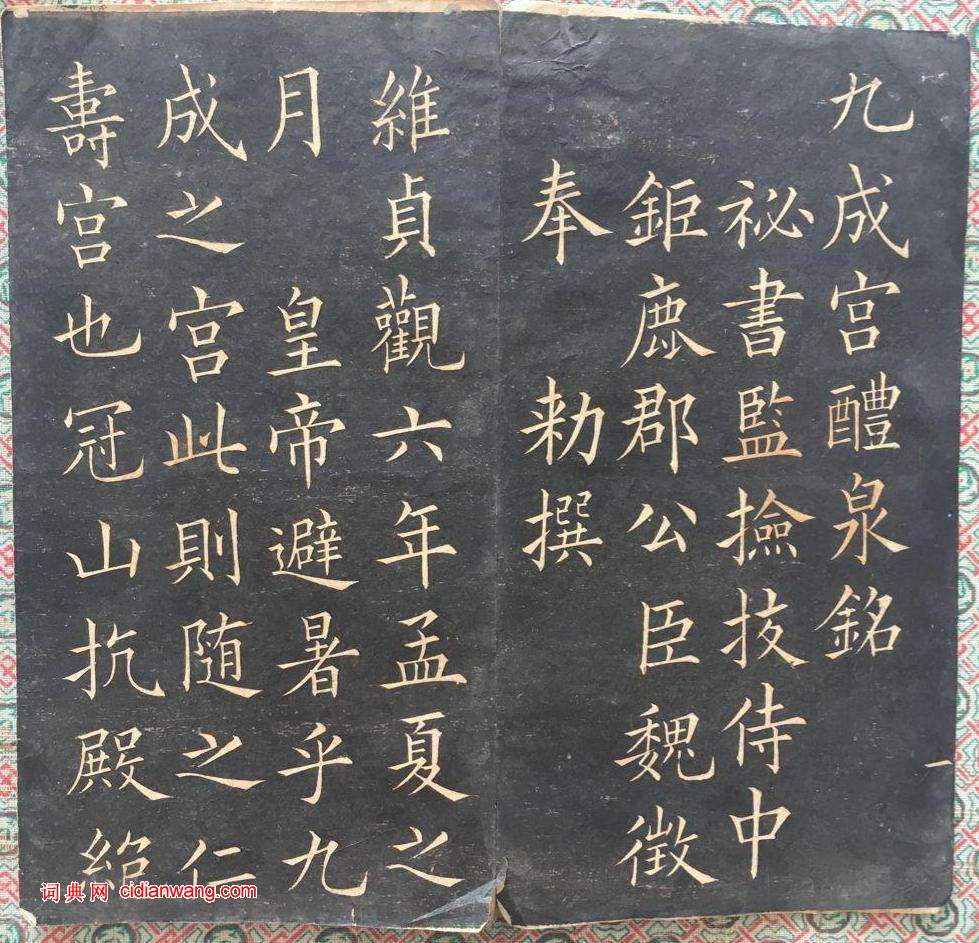 九成宮醴泉銘
祕書監撿挍侍中
鉅鹿郡公臣魏徵
奉勑撰
維貞觀六年孟夏之
月皇帝避暑乎九
成之宮此則随之仁
壽宮也冠山抗殿絶
一
词典网 cidianwang.com